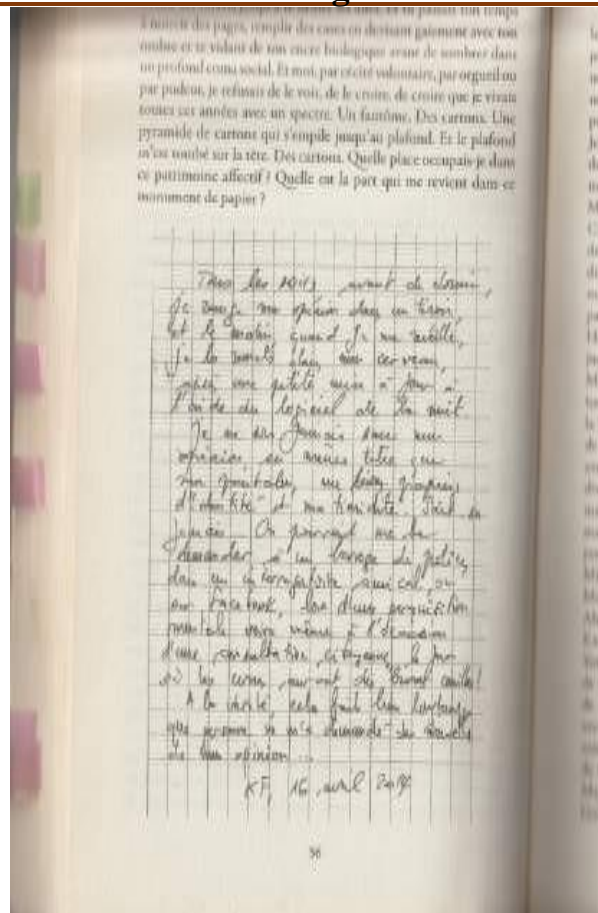 à noircir des pages, remplir des cases en devisant gaiement avec ton
ombre et te vidant de ton encre biologique avant de sombrer dans
un profond coma social. Et moi, par cécité volontaire, par orgueil ou
par pudeur, je refusais de le voir, de le croire, de croire que je vivais
toutes ces années avec un spectre. Un fantôme. Des cartons. Une
pyramide de cartons qui s'empile jusqu'au plafond. Et le plafond
m'est tombé sur la tête. Des cartons. Quelle place occupais-je dans
ce patrimoine affectif ? Quelle est la part qui me revient dans ce
monument de papier ?
Tous les soirs avant de dormir,
Je range mon opinion dans un tiroir,
et le matin, quand je me réveille,
Je la remets dans mon cerveau,
après une petite mise à jour à
l'aide du logiciel de la nuit.
Je ne sors jamais sans mon
opinion, au même titre que
mon portable, ma
d'identité et ma timidité. Sait-on
jamais. On pourrait me la
demander à un barrage de police,
dans un interrogatoire amical, ou
sur Facebook, lors d'une perquisition
mentale voire même à l'occasion
d'une consultation citoyenne le jour
où les urnes auront des
A la vérité, cela fait bien longtemps
que personne ne m'a demandé des nouvelles
de mon opinion...
KF, 16 avril 2014
56